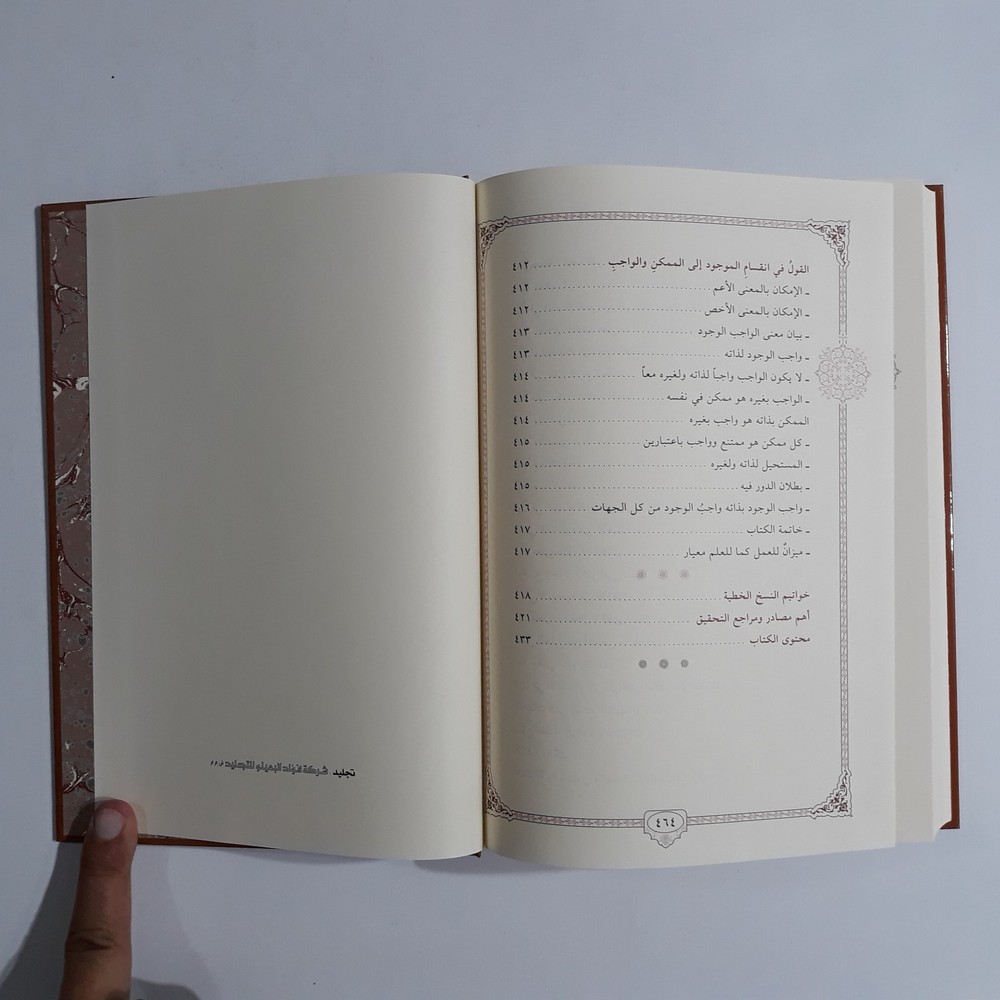 القولُ في انقسامِ الموجود إلى الممكنِ والواجبِ ............... ٤١٢
ـ الإمكان بالمعنى الأعم ............... ٤١٢
ـ الإمكان بالمعنى الأخص ............... ٤١٢
ـ بيان معنى الواجب الوجود ............... ٤١٣
ـ واجب الوجود لذاته ............... ٤١٣
ـ لا يكون الواجب واجباً لذاته ولغيره معاً ............... ٤١٤
ـ الواجب بغيره هو ممكن في نفسه ............... ٤١٤
الممكن بذاته هو واجب بغيره ............... ٤١٤
ـ كل ممكن هو ممتنع وواجب باعتبارين ............... ٤١٥
ـ المستحيل لذاته ولغيره ............... ٤١٥
ـ بطلان الدور فيه ............... ٤١٥
ـ واجب الوجود بذاته واجبُ الوجود من كل الجهات ............... ٤١٦
ـ خاتمة الكتاب ............... ٤١٧
ـ ميزانٌ للعمل كما للعلم معيار ............... ٤١٧
خواتيم النسخ الخطية ............... ٤١٨
أهم مصادر ومراجع التحقيق ............... ٤٢١
محتوى الكتاب ............... ٤٣٣
٤٦٤
تجليد شركة فؤاد البعينو للتجليد